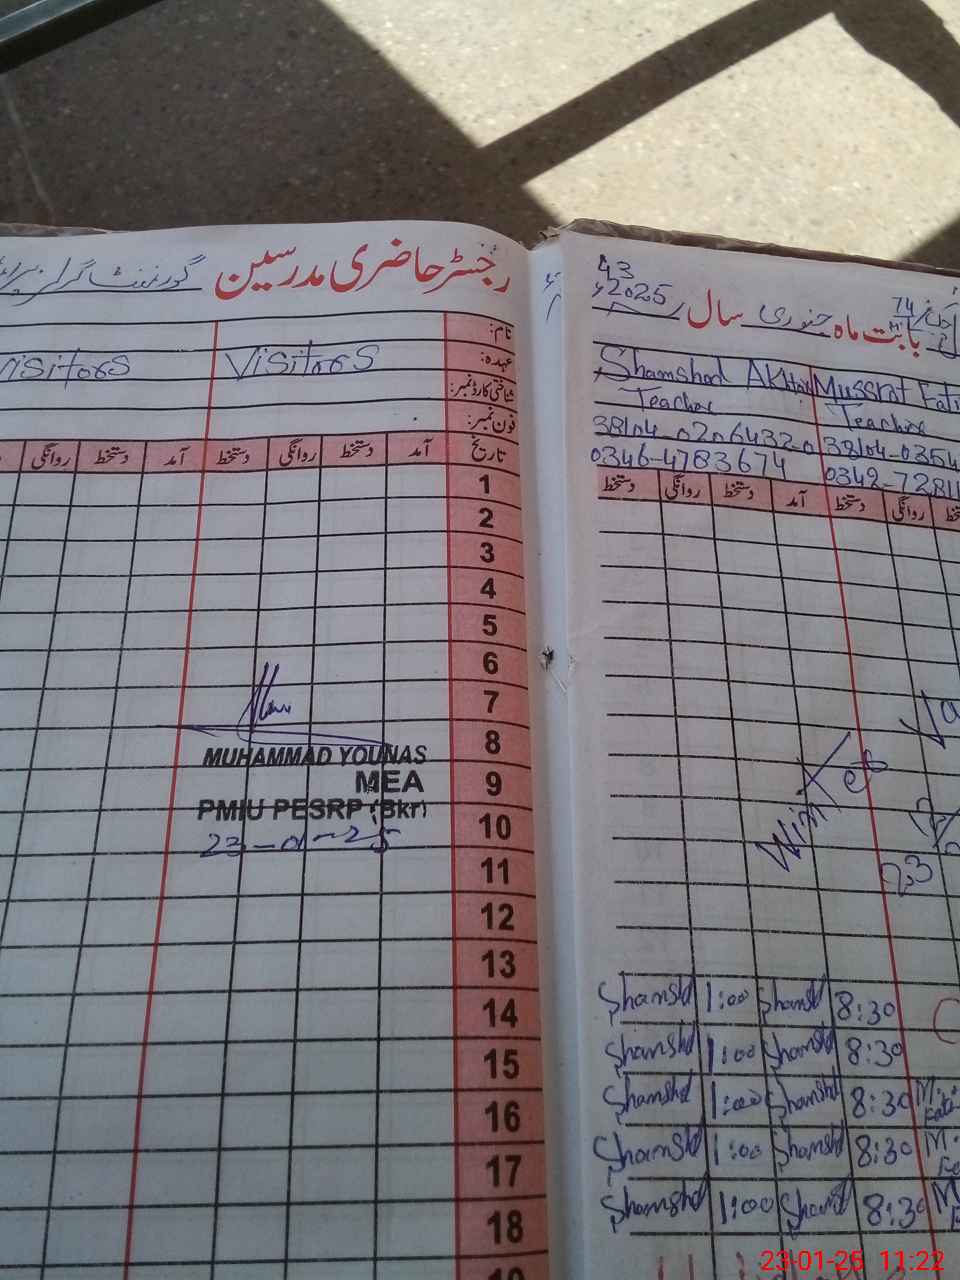 رجسٹر حاضری مدرسین گورنمنٹ گرلز
نام:
عہدہ: Visitors Visitors
شناختی کارڈ نمبر:
فون نمبر:
تاریخ آمد دستخط روانگی دستخط آمد دستخط روانگی
1
2
3
4
5
6
7
8
9
10
11
12
13
14
15
16
17
18
MUHAMMAD YOUNAS
MEA
PMIU PESRP (Bkr)
23-01-25
43
74
بابت ماہ جنوری سال 2025ء
Shamshad Akhtar Mussrat
Teacher Teacher
38104-0206432-0 38104-0354
0346-4783674 0342-7281
دستخط روانگی دستخط آمد دستخط روانگی
Winter
23
Shamshd 1:00 Shamshd 8:30
Shamshd 1:00 Shamshd 8:30
Shamshd 1:00 Shamshd 8:30 M.
Shamshd 1:00 Shamshd 8:30 M.
Shamshd 1:00 Shamshd 8:30 M
23-01-25 11:22